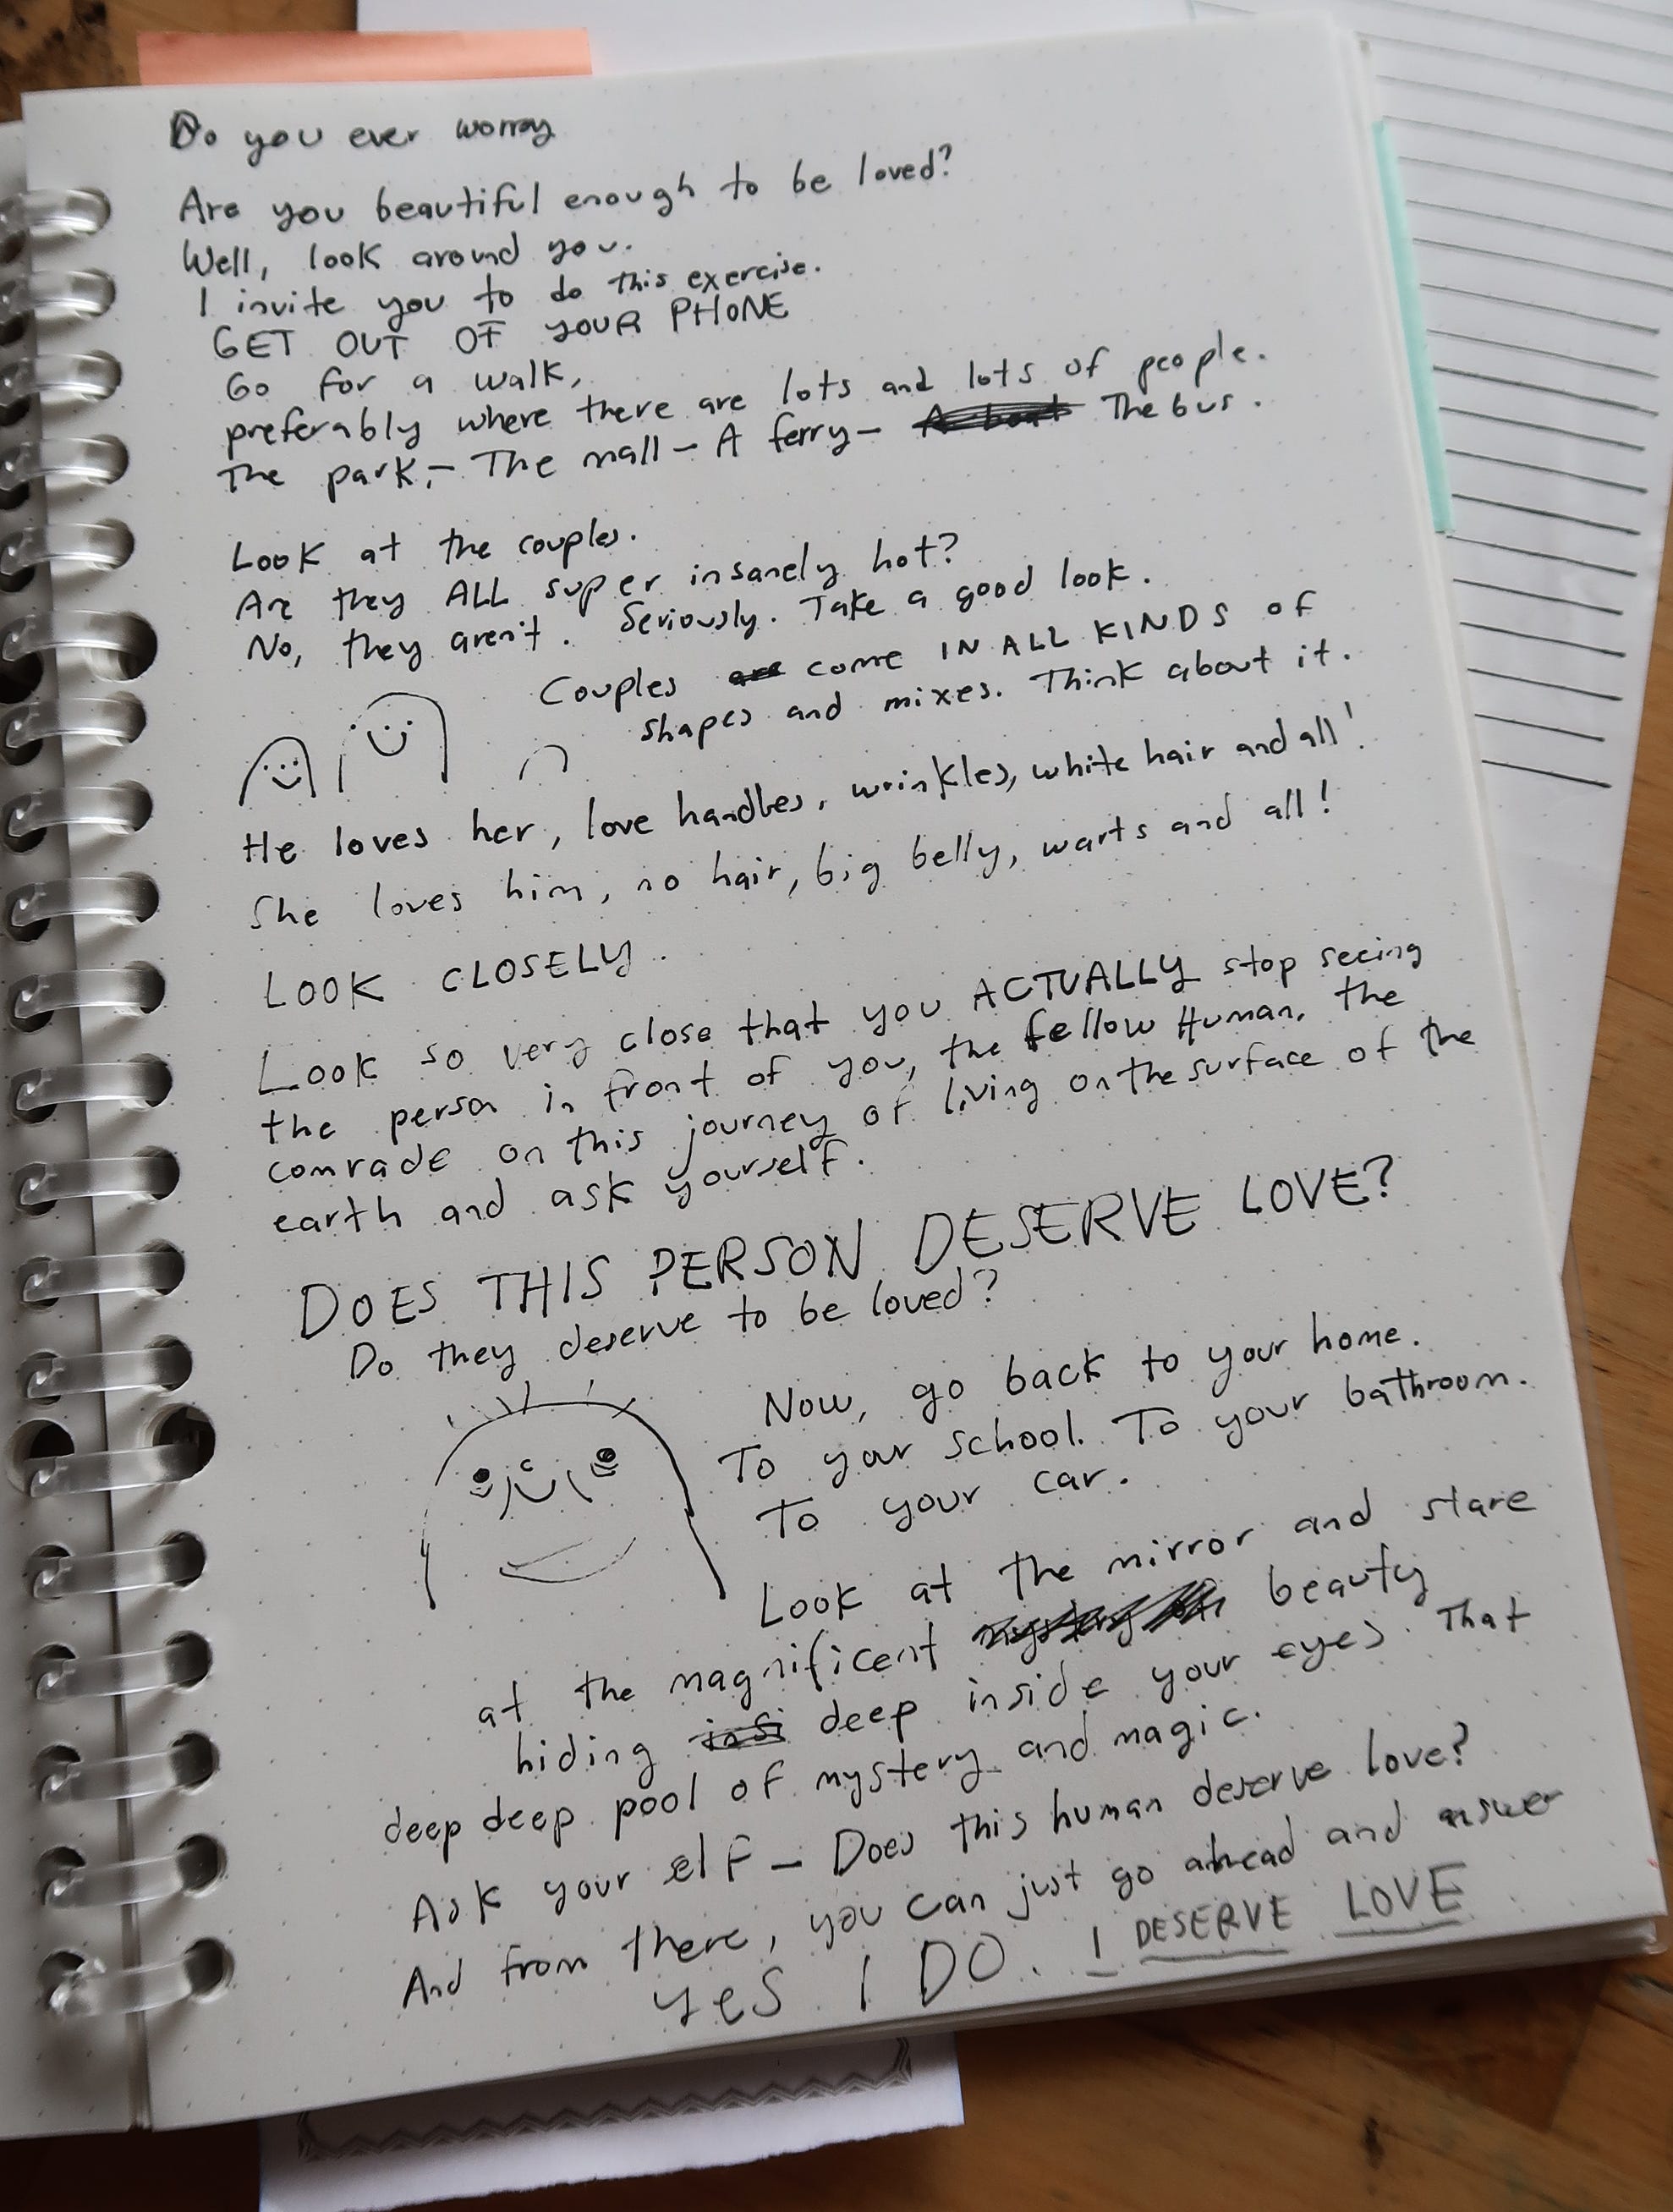 Do you ever worry
Are you beautiful enough to be loved?
Well, look around you.
I invite you to do this exercise.
GET OUT OF YOUR PHONE
Go for a walk,
preferably where there are lots and lots of people.
The park, – The mall – A ferry – A boat The bus.
Look at the couples.
Are they ALL super insanely hot?
No, they aren't. Seriously. Take a good look.
Couples are come IN ALL KINDS OF
shapes and mixes. Think about it.
He loves her, love handles, wrinkles, white hair and all!
She loves him, no hair, big belly, warts and all!
LOOK CLOSELY.
Look so very close that you ACTUALLY stop seeing
the person in front of you, the fellow Human, the
comrade on this journey of living on the surface of the
earth and ask yourself.
DOES THIS PERSON DESERVE LOVE?
Do they deserve to be loved?
Now, go back to your home.
To your school. To your bathroom.
To your car.
Look at the mirror and stare
at the magnificent mystery of beauty
hiding insi deep inside your eyes. That
deep deep pool of mystery and magic.
Ask your self – Does this human deserve love?
And from there, you can just go ahead and answer
Yes I DO. I DESERVE LOVE